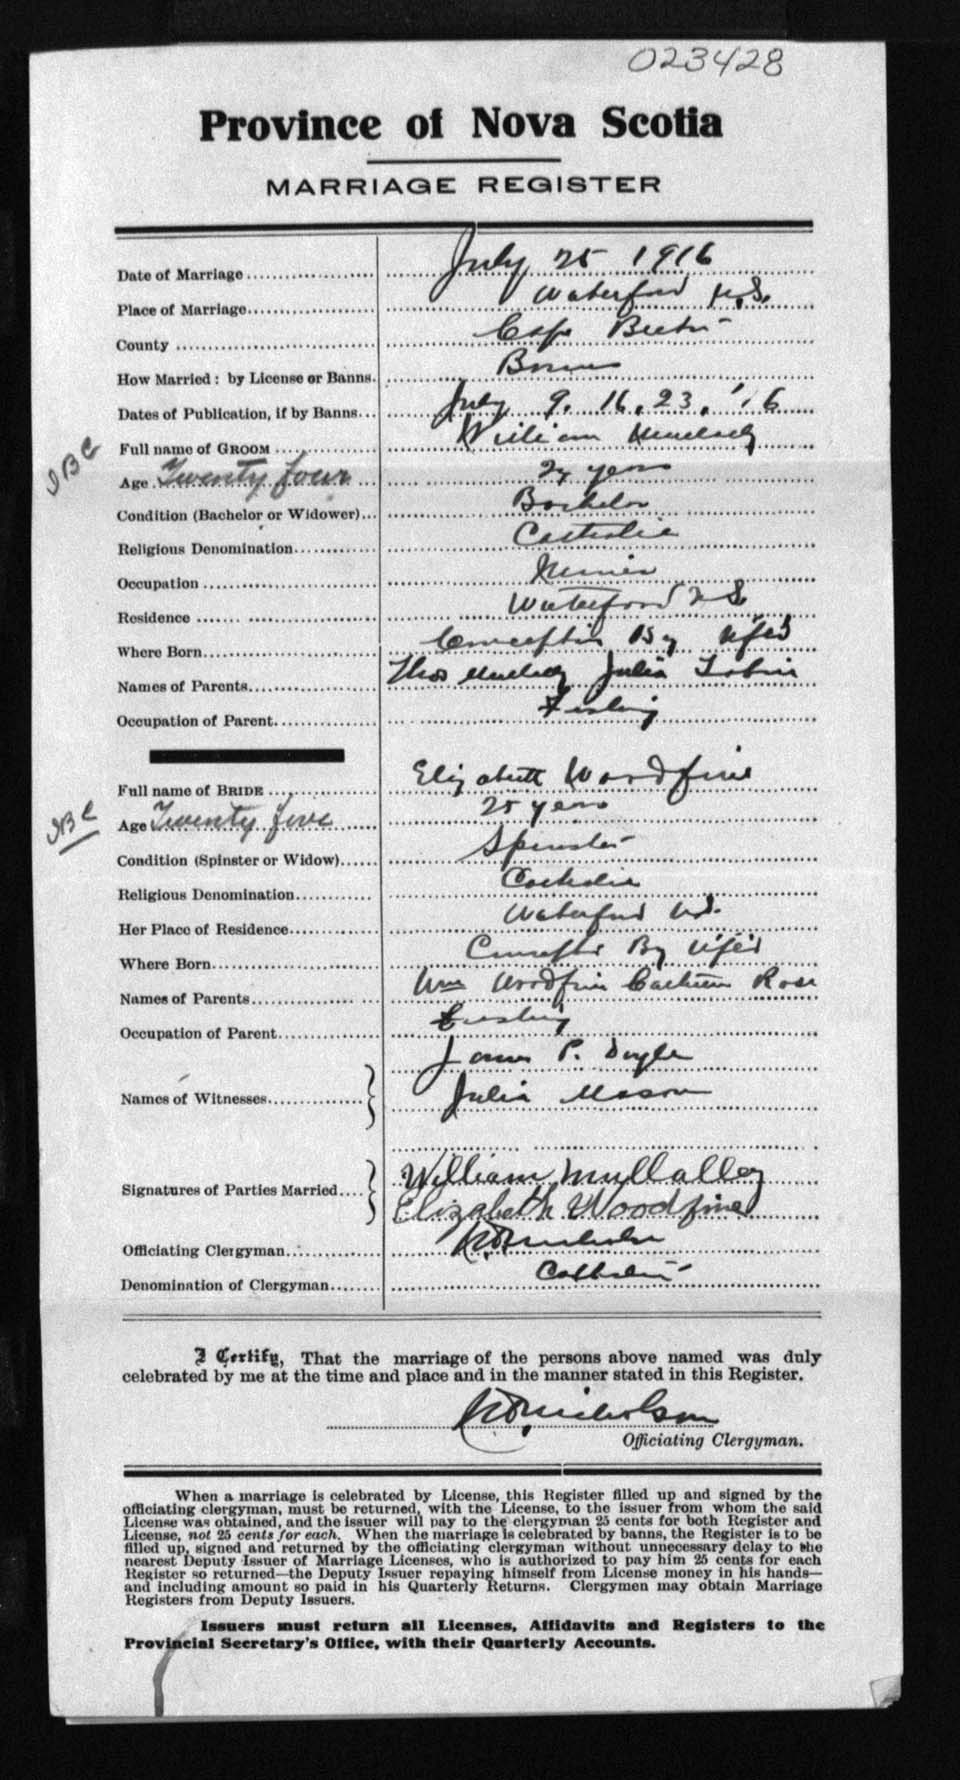 023428
Province of Nova Scotia
MARRIAGE REGISTER
Date of Marriage July 25 1916
Place of Marriage Waterford N.S.
County Cape Breton
How Married: by License or Banns. Banns
Dates of Publication, if by Banns July 9, 16, 23, '16
Full name of GROOM William
IBC
Age Twenty four 24 years
Condition (Bachelor or Widower) Bachelor
Religious Denomination Catholic
Occupation Miner
Residence Waterford N S
Where Born Conception By Nfld
Names of Parents Thos Julia Tobin
Occupation of Parent Fishing
Full name of BRIDE Elizabeth Woodfine
IBC
Age Twenty five 25 years
Condition (Spinster or Widow) Spinster
Religious Denomination Catholic
Her Place of Residence Waterford N.S.
Where Born Conception By Nfld
Names of Parents Wm Woodfine Catherine Rose
Occupation of Parent Fishing
Names of Witnesses James P. Doyle
Julia Mason
Signatures of Parties Married William Mullalley
Elizabeth Woodfine
Officiating Clergyman Nicholson
Denomination of Clergyman Catholic
I Certify, That the marriage of the persons above named was duly
celebrated by me at the time and place and in the manner stated in this Register.
Nicholson
Officiating Clergyman.
When a marriage is celebrated by License, this Register filled up and signed by the
officiating clergyman, must be returned, with the License, to the issuer from whom the said
License was obtained, and the issuer will pay to the clergyman 25 cents for both Register and
License, not 25 cents for each. When the marriage is celebrated by banns, the Register is to be
filled up, signed and returned by the officiating clergyman without unnecessary delay to the
nearest Deputy Issuer of Marriage Licenses, who is authorized to pay him 25 cents for each
Register so returned—the Deputy Issuer repaying himself from License money in his hands—
and including amount so paid in his Quarterly Returns. Clergymen may obtain Marriage
Registers from Deputy Issuers.
Issuers must return all Licenses, Affidavits and Registers to the
Provincial Secretary's Office, with their Quarterly Accounts.